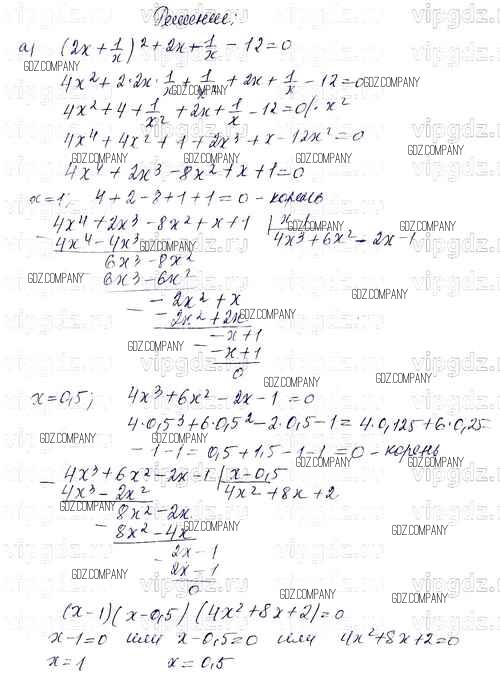 Решение:
а) (2x + 1/x)² + 2x + 1/x - 12 = 0
4x² + 2·2x·1/x + 1/x² + 2x + 1/x - 12 = 0
4x² + 4 + 1/x² + 2x + 1/x - 12 = 0 /· x²
4x⁴ + 4x² + 1 + 2x³ + x - 12x² = 0
4x⁴ + 2x³ - 8x² + x + 1 = 0
x = 1; 4 + 2 - 8 + 1 + 1 = 0 - корень
4x⁴ + 2x³ - 8x² + x + 1 | x - 1
- 4x⁴ - 4x³ 4x³ + 6x² - 2x - 1
6x³ - 8x²
6x³ - 6x²
- 2x² + x
- 2x² + 2x
- x + 1
- x + 1
0
x = 0,5; 4x³ + 6x² - 2x - 1 = 0
4·0,5³ + 6·0,5² - 2·0,5 - 1 = 4·0,125 + 6·0,25
- 1 - 1 = 0,5 + 1,5 - 1 - 1 = 0 - корень
- 4x³ + 6x² - 2x - 1 | x - 0,5
4x³ - 2x² 4x² + 8x + 2
- 8x² - 2x
8x² - 4x
- 2x - 1
2x - 1
0
(x - 1)(x - 0,5)(4x² + 8x + 2) = 0
x - 1 = 0 или x - 0,5 = 0 или 4x² + 8x + 2 = 0
x = 1 x = 0,5